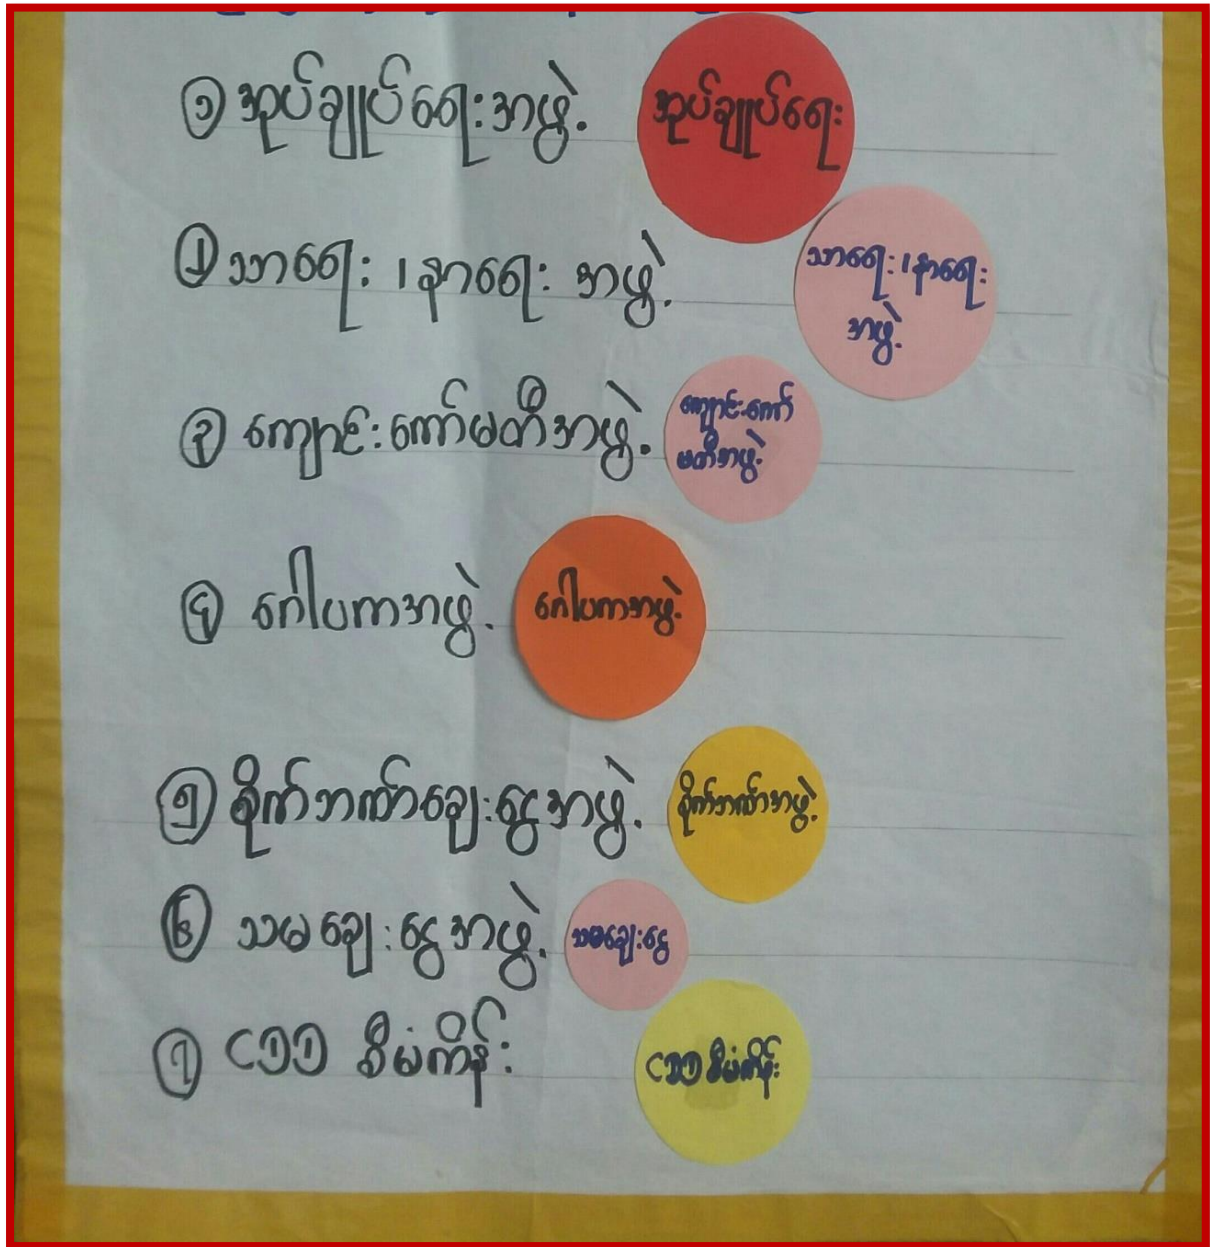 ၁ အုပ်ချုပ်ရေးအဖွဲ့ အုပ်ချုပ်ရေး
၂ သာရေး၊နာရေး အဖွဲ့ သာရေး၊နာရေး
အဖွဲ့
၃ ကျောင်းကော်မတီအဖွဲ့ ကျောင်းကော်
မတီအဖွဲ့
၄ ဂေါပကအဖွဲ့ ဂေါပကအဖွဲ့
၅ စိုက်ဘဏ်ချေးငွေအဖွဲ့ စိုက်ဘဏ်အဖွဲ့
၆ သမချေးငွေအဖွဲ့ သမချေးငွေ
၇ CDD စီမံကိန်း CDD စီမံကိန်း